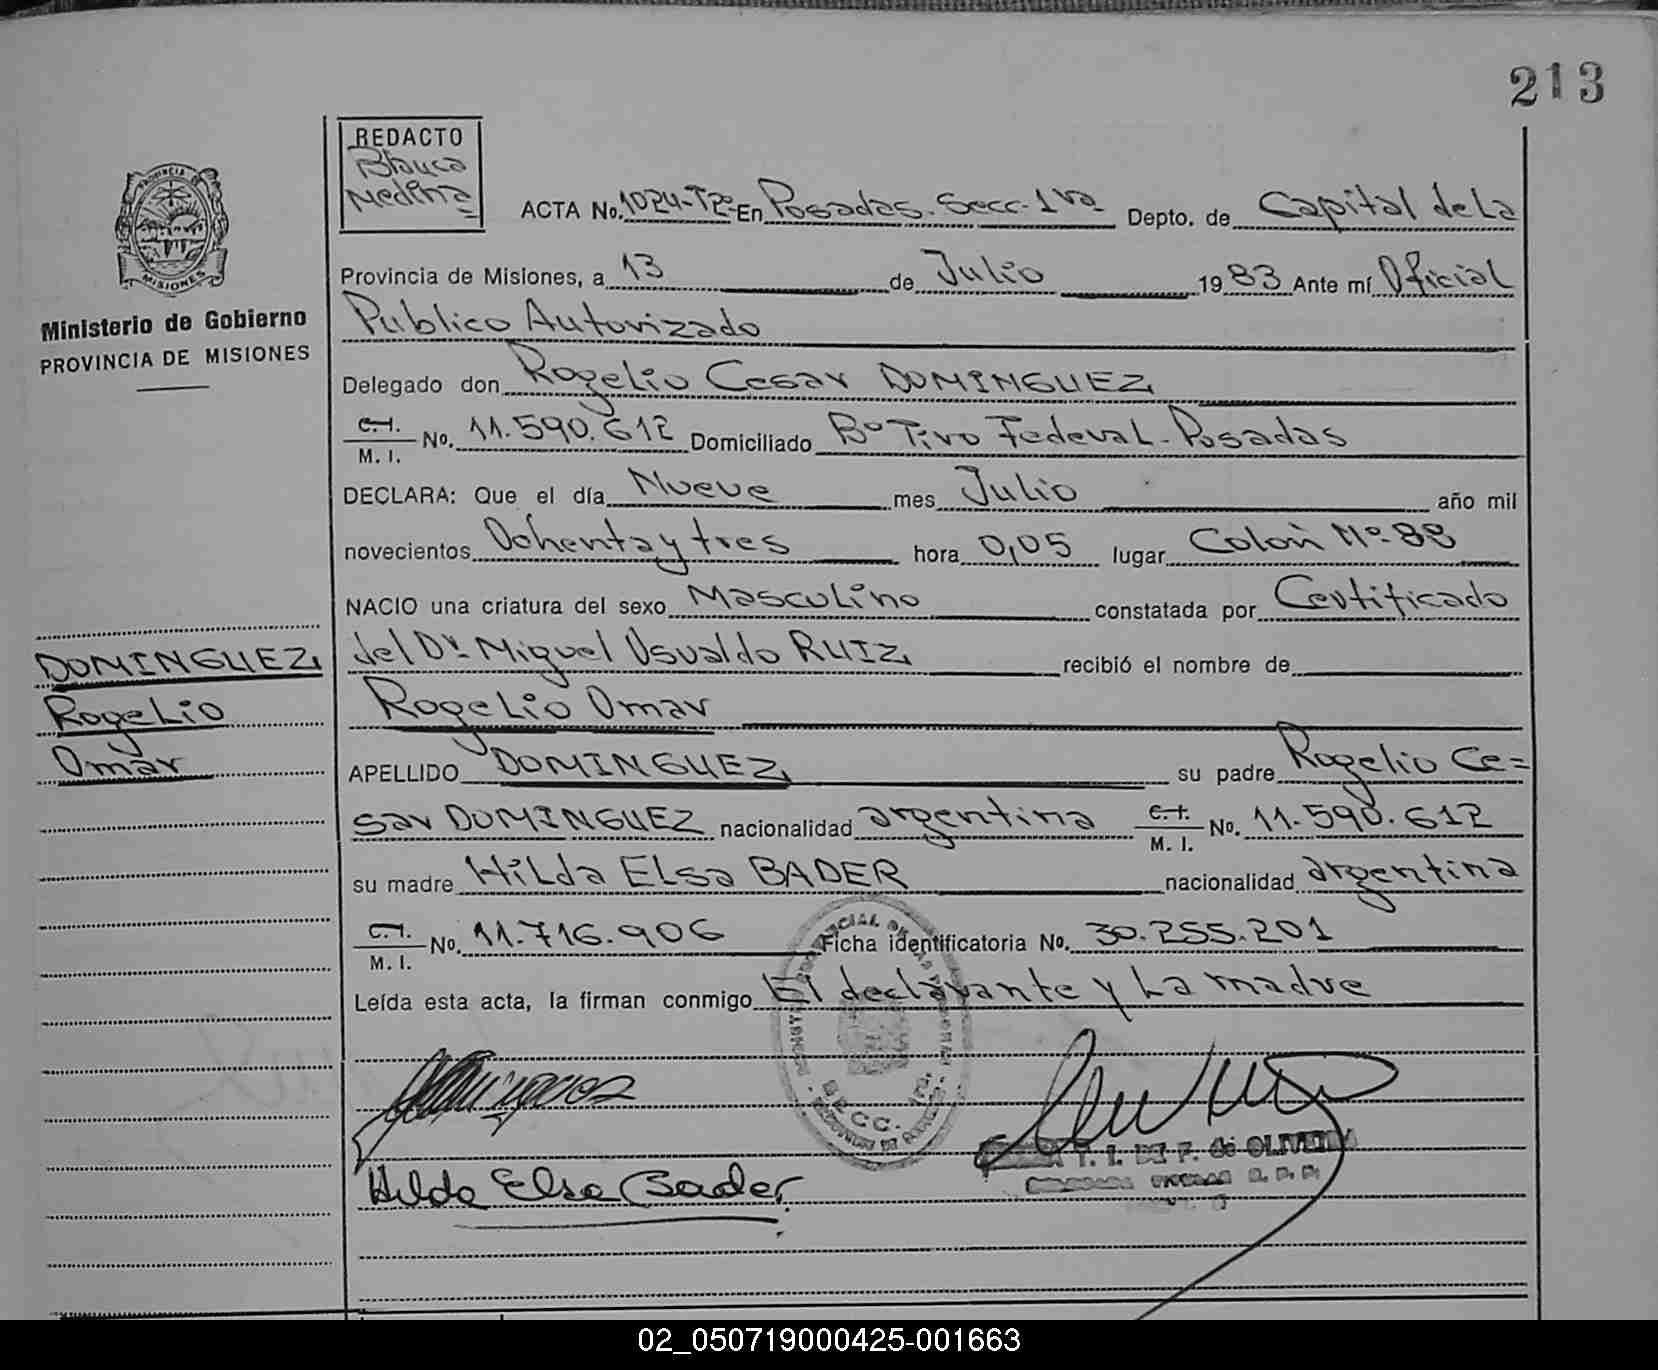 213
REDACTO
Blanca
Medina
ACTA No. 1024-Tº2-En Posadas. Secc. 1ra Depto. de Capital de La
Provincia de Misiones, a 13 de Julio 1983 Ante mí Oficial
Publico Autorizado
Delegado don Rogelio Cesar DOMINGUEZ
C.I.
M. I. No. 11.590.612 Domiciliado Bº Tiro Federal - Posadas
DECLARA: Que el día Nueve mes Julio año mil
novecientos Ochenta y tres hora 0,05 lugar Colon Nº 88
NACIO una criatura del sexo Masculino constatada por Certificado
del Dr. Miguel Osvaldo RUIZ recibió el nombre de
Rogelio Omar
APELLIDO DOMINGUEZ su padre Rogelio Ce=
sar DOMINGUEZ nacionalidad argentina C.I.
M. I. No. 11.590.612
su madre Hilda Elsa BADER nacionalidad argentina
C.I.
M. I. No. 11.716.906 Ficha identificatoria No. 30.255.201
Leída esta acta, la firman conmigo El declarante y La madre
PROVINCIA DE
MISIONES
Ministerio de Gobierno
PROVINCIA DE MISIONES
DOMINGUEZ
Rogelio
Omar
SECC. 1ra.
Dominguez
Hilda Elsa Bader
T. I. DE F. de OLIVEIRA
02_050719000425-001663